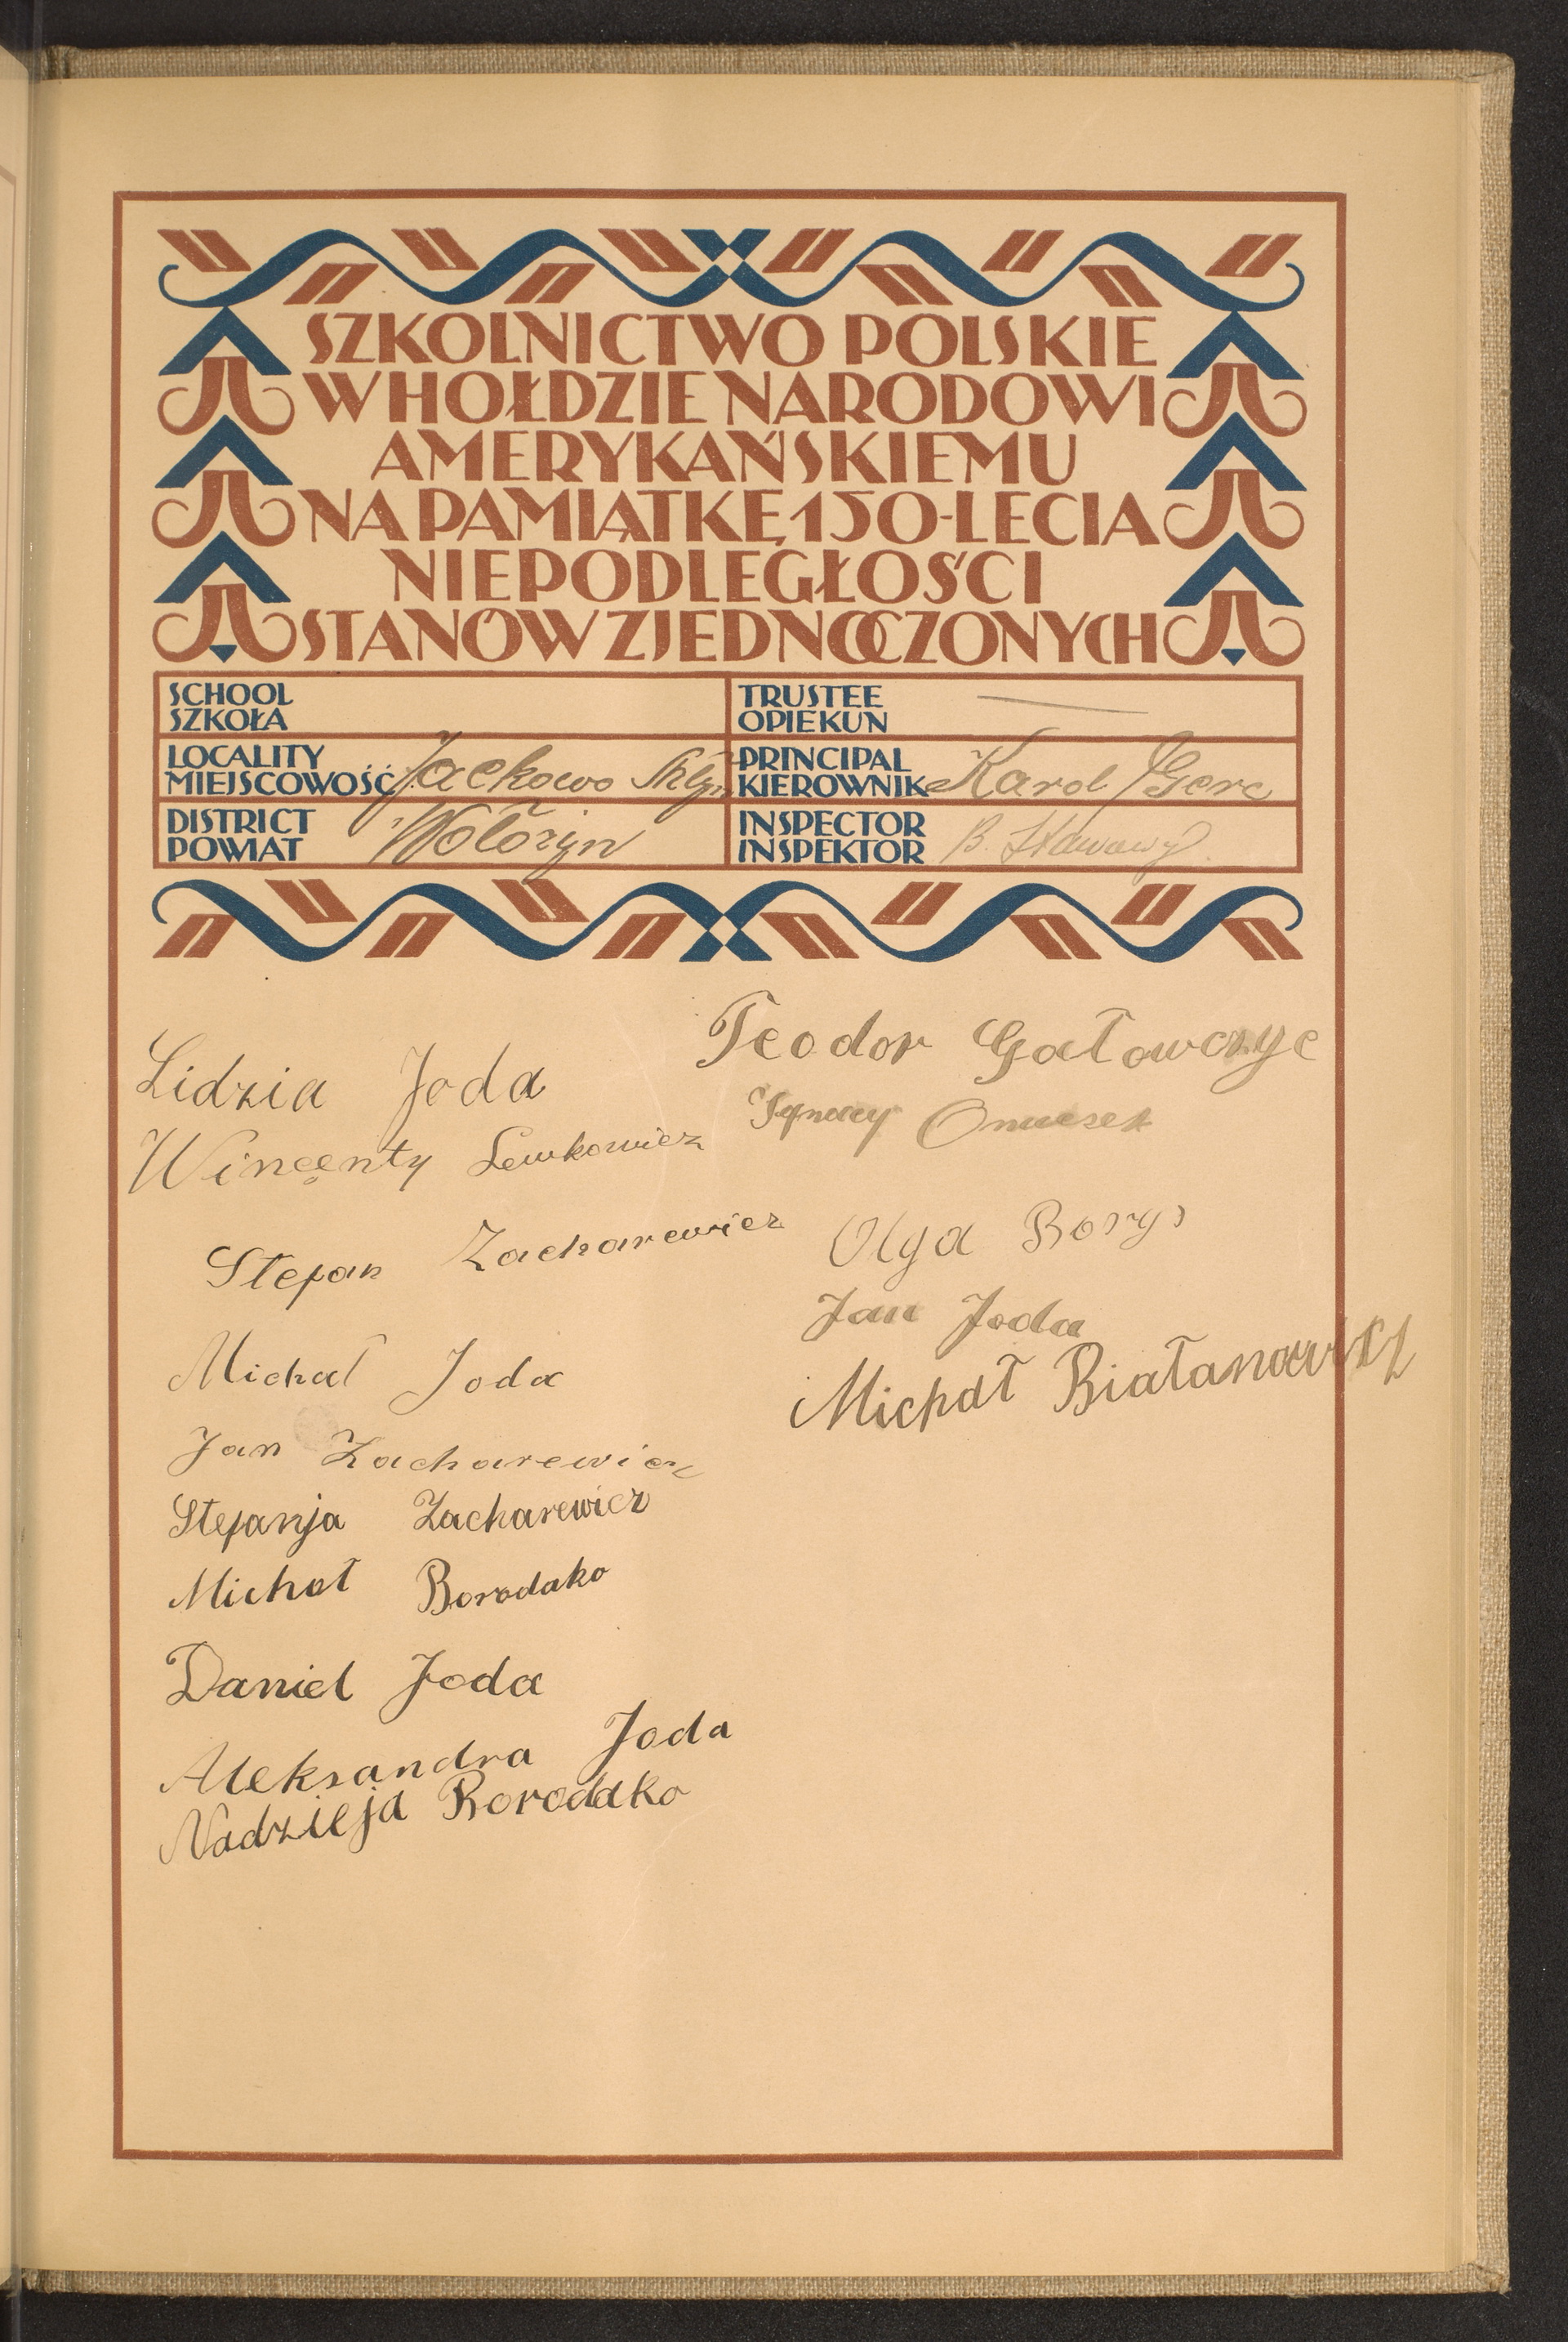 SZKOLNICTWO POLSKIE
W HOŁDZIE NARODOWI
AMERYKAŃSKIEMU
NA PAMIĄTKĘ 150-LECIA
NIEPODLEGŁOŚCI
STANÓW ZJEDNOCZONYCH
SCHOOL
SZKOŁA
TRUSTEE
OPIEKUN
LOCALITY
MIEJSCOWOŚĆ Jackowo
PRINCIPAL
KIEROWNIK Karol Gerc
DISTRICT
POWIAT Wołożyn
INSPECTOR
INSPEKTOR B.
Lidzia Joda
Wincenty Lewkowicz
Stefan Zacharewicz
Michał Joda
Jan Zacharewicz
Stefanja Zacharewicz
Michał Borodako
Daniel Joda
Aleksandra Joda
Nadzieja Borodako
Teodor Gatowczyc
Ignacy
Olga Borys
Jan Joda
Michał